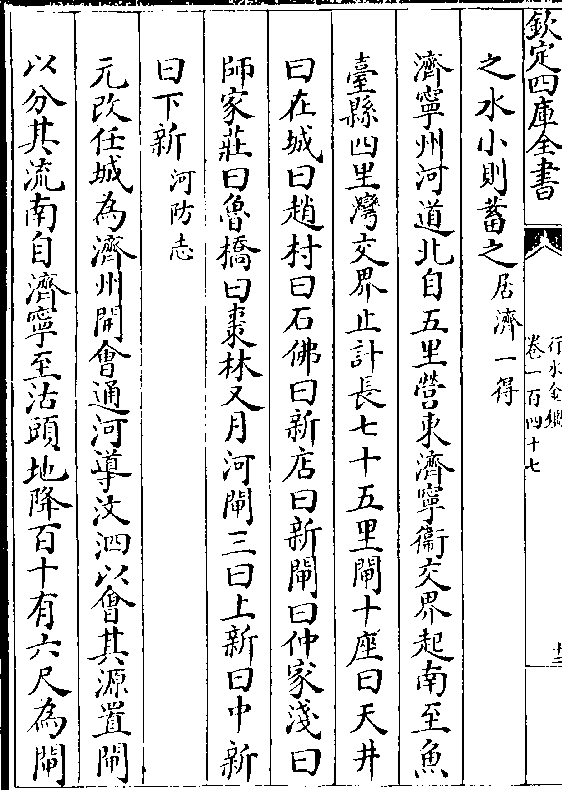 欽定四庫全書
行水金鑑
卷一百四十七
十三
之水小則蓄之居濟一得
濟寧州河道北自五里營東濟寧衞交界起南至魚
臺縣四里灣交界止計長七十五里閘十座曰天井
曰在城曰趙村曰石佛曰新店曰新閘曰仲家淺曰
師家莊曰魯橋曰棗林又月河閘三曰上新曰中新
曰下新河防志
元改任城為濟州開會通河導汶泗以會其源置閘
以分其流南自濟寧至沽頭地降百十有六尺為閘